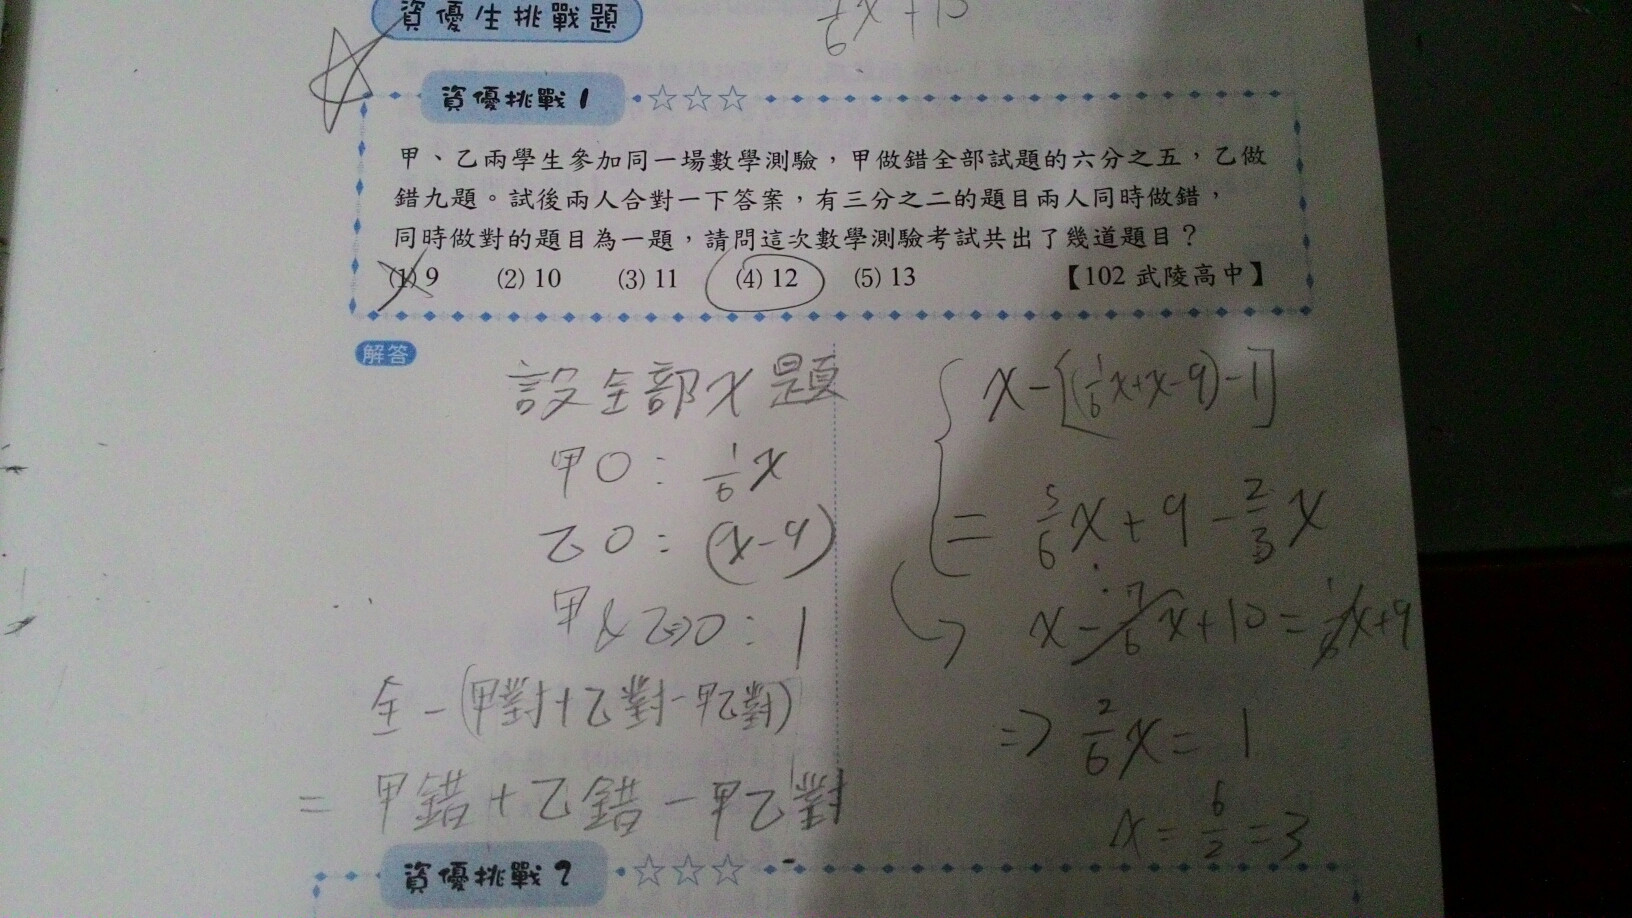 資優生挑戰題
1/6 x + 10
資優挑戰1 ☆☆☆
甲、乙兩學生參加同一場數學測驗，甲做錯全部試題的六分之五，乙做
錯九題。試後兩人合對一下答案，有三分之二的題目兩人同時做錯，
同時做對的題目為一題，請問這次數學測驗考試共出了幾道題目？
(1) 9 (2) 10 (3) 11 (4) 12 (5) 13 【102 武陵高中】
解答
設全部x題
甲O：1/6 x
乙O：(x-9)
甲&乙⇒O：1
全-(甲對+乙對-甲乙對)
= 甲錯+乙錯-甲乙對
x-[(1/6 x+x-9)-1]
= 5/6 x+9-2/3 x
→ x-7/6 x+10=1/6 x+9
⇒ 2/6 x = 1
x = 6/2 = 3
資優挑戰2 ☆☆☆